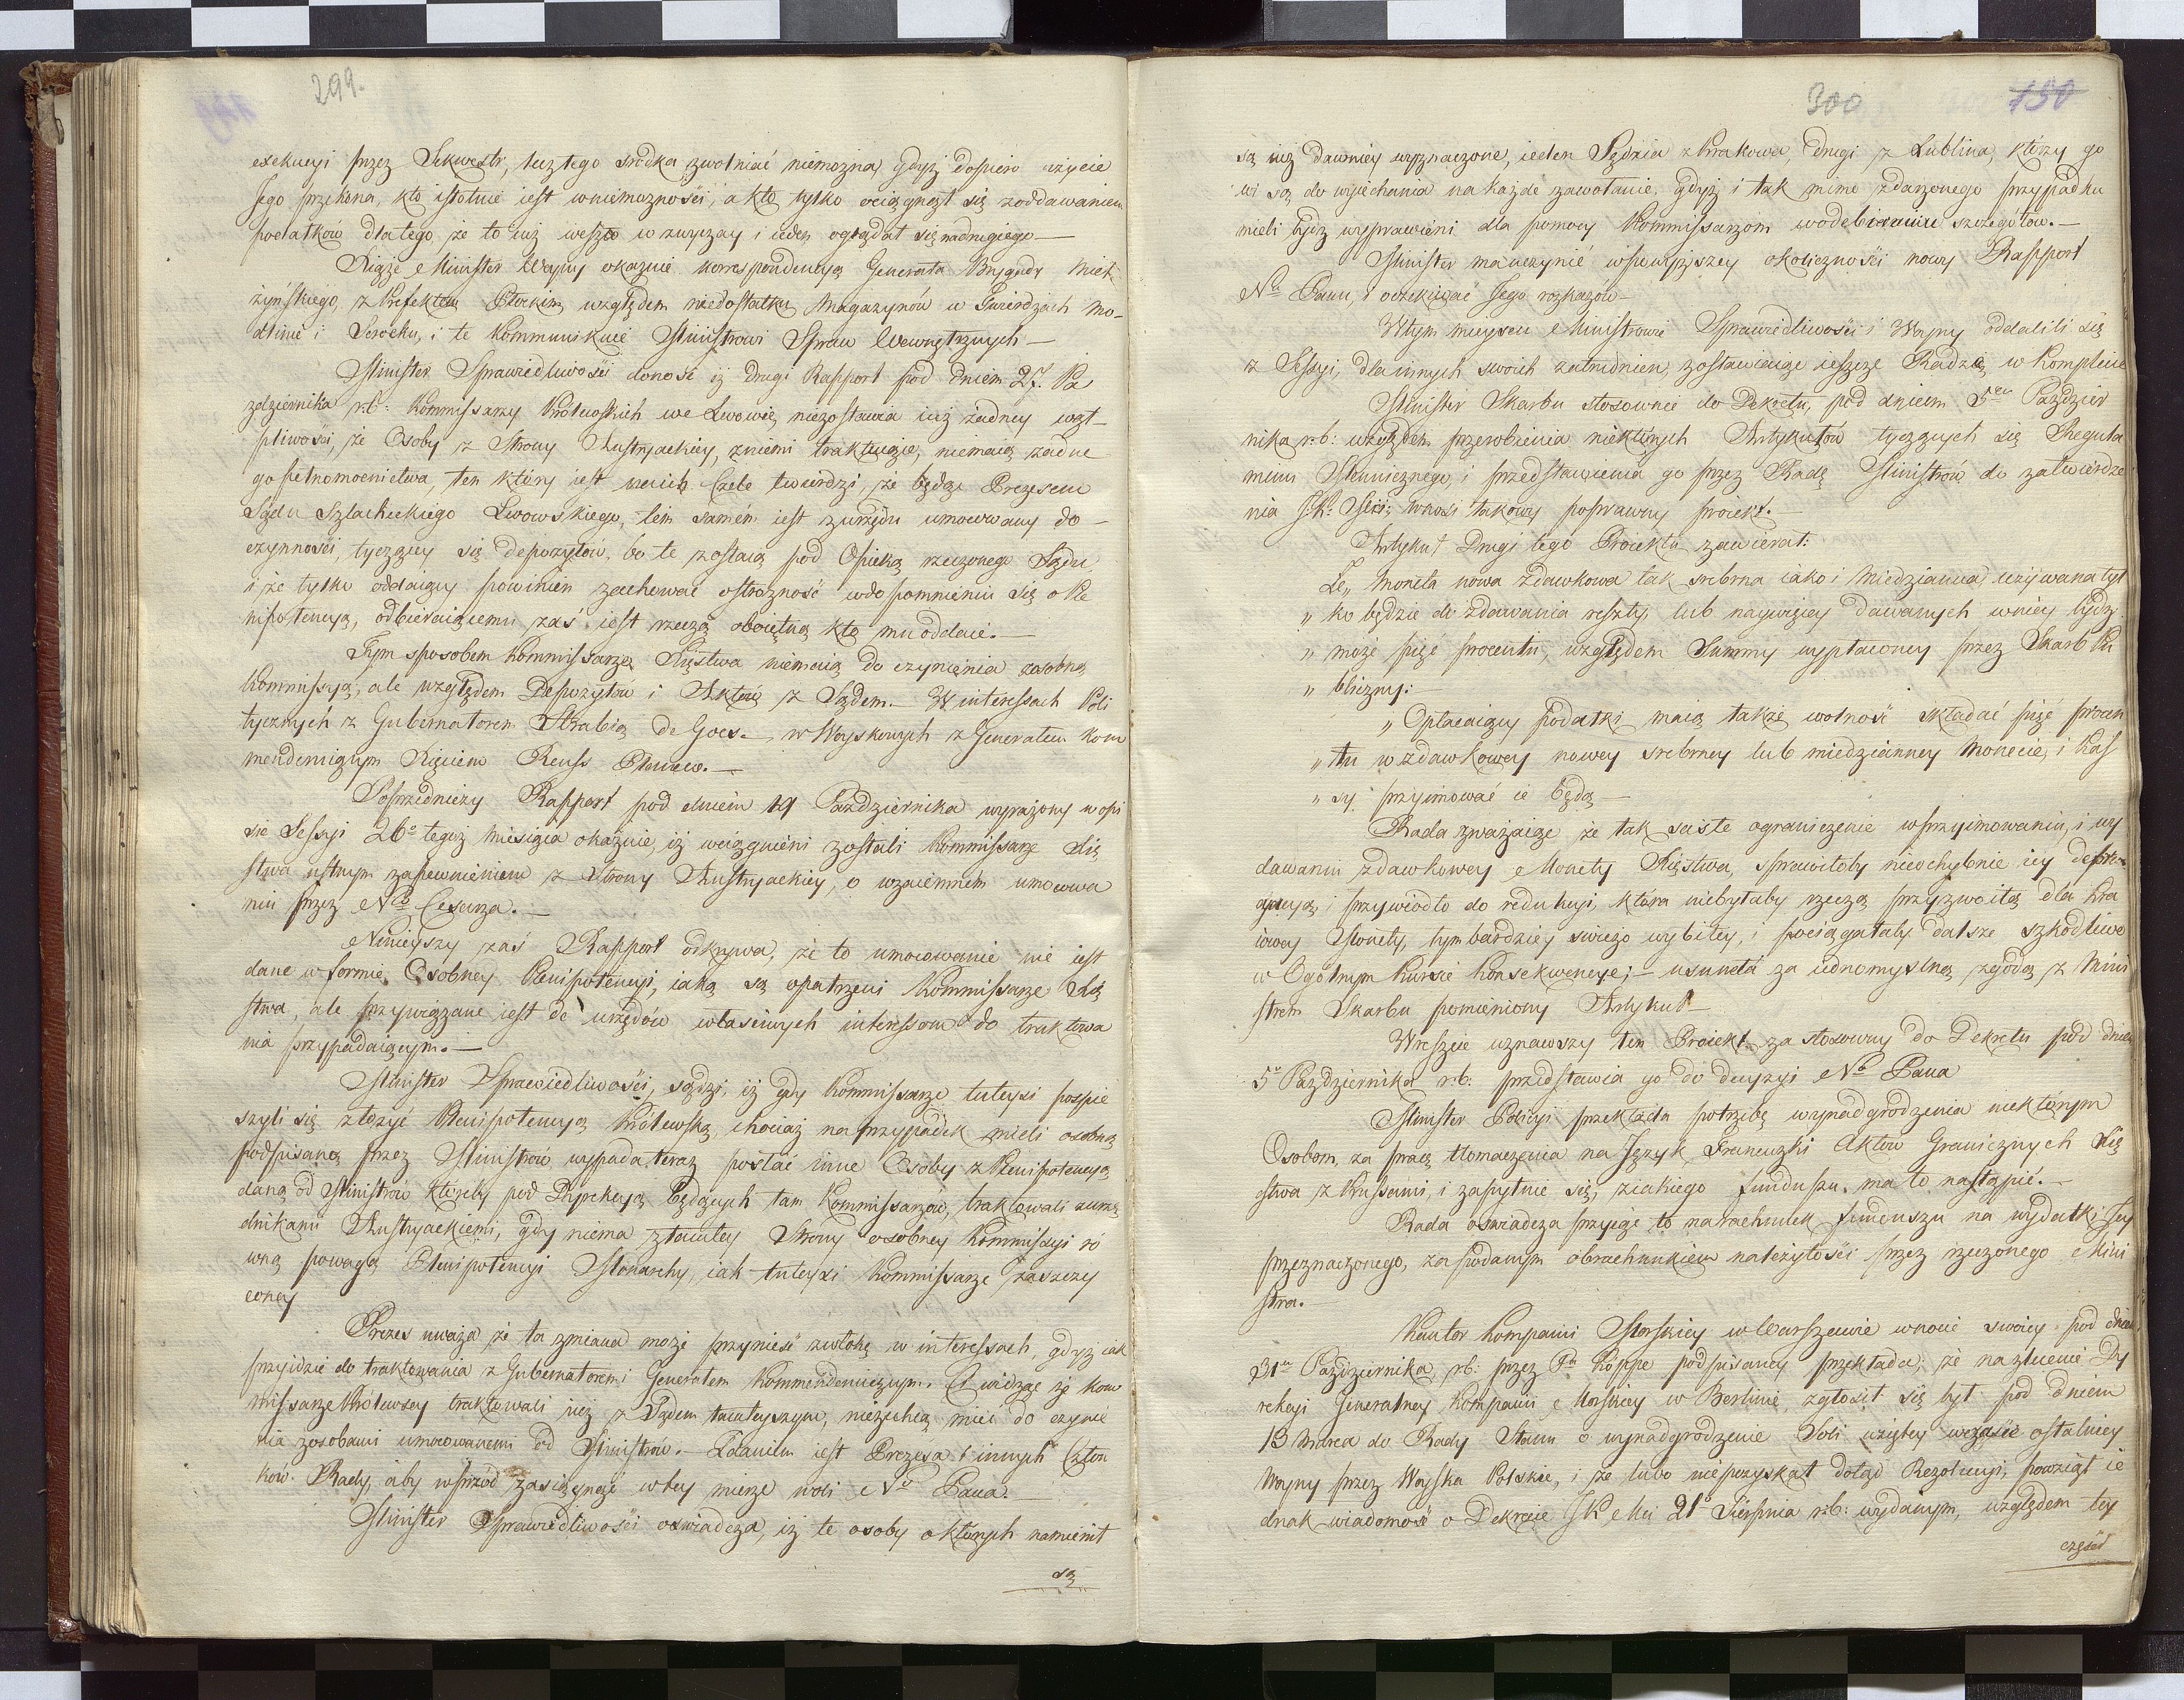 299.
exekucyi przez Sekwestr, lecz tego srodka zwolniać niemożna, gdyż dopiero użycie
Jego przekona, kto istotnie iest w niemożności, a kto tylko ociągnął się z oddawaniem
podatków dla tego że to iuż weszło w zwyczay i ieden oglądał się na drugiego —
Xiąże Minister Woyny okazuie korrespondencyą Generała Brygady Niek-
żyńskiego, z Prefektem Płockim względem niedostatku Magazynów w Twierdzach Mo-
dlinie i Serocku, i te kommunikuie Ministrowi Spraw Wewnętrznych —
Minister Sprawiedliwości donosi iż drugi Rapport pod dniem 27. Pa
zdziernika r.b: Kommissarzy Królewskich we Lwowie, niezostawia iuż żadney wąt-
pliwości, że Osoby z Strony Austryackiey, z niemi traktuiące, niemaią żadne-
go pełnomocnictwa, ten który iest na ich Czele twierdzi, że będąc Prezesem
Sądu Szlacheckiego Lwowskiego, tem samém iest z urzędu umocowany do -
czynności, tyczącey się depozytów, bo te zostaią pod Opieką rzeczonego Sądu,
i że tylko oddaiący powinien zachować ostrożność w dopomnieniu się o Ple
nipotencyą, odbieraiącemu zaś iest rzeczą oboiętną kto mu oddaie. —
Tym sposobem Kommissarze Xięstwa niemaią do czynienia z osobną
Kommissyą, ale względem Depozytów i Aktów z Sądem. — W interessach Poli
tycznych z Gubernatorem Hrabią de Goes. — w Woyskowych z Generałem kom
menderuiącym Xięciem Reuss Plauen. —
Pośrednieży Rapport pod dniem 19 Pazdziernika wyrażony w opi
sie Sessyi 26° tegoż miesiąca okazuie, iż wciągnieni zostali Kommissarze Xię
stwa ustnym zapewnieniem z Strony Austryackiey, o wzaiemném umocowa
niu przez N° Cesarza. —
Ninieyszy zaś Rapport odkrywa, że to umocowanie nie iest
dane w formie Osobney Plenipotencyi, iaką są opatrzeni Kommissarze Xię
stwa, ale przywiązane iest do urzędów właściwych interessom do traktowa
nia przypadaiącym. —
Minister Sprawiedliwości, sądzi, iż gdy Kommissarze tuteysi pospie
szyli się złożyć Plenipotencyą Królewską, chociaż na przypadek mieli osobną
podpisaną przez Ministrów wypada, teraz posłać inne Osoby z Plenipotencyą
daną od Ministrów, którzby pod Dyrekcyą będących tam Kommissarzów, traktowali z urzę
dnikami Austryackiemi, gdy niema z tamtey Strony osobney Kommissyi ró
wną powagą Plenipotencyi Monarchy, iak tuteysi Kommissarze zaszczy
coney
Prezes uważa że ta zmiana może przynieść zwłokę w interessach, gdyż iak
przyidzie do traktowania z Gubernatorem i Generałem Kommenderuiącym. Ci widząc że Kom
missarze Królewscy traktowali iuż z Sądem tamteyszym, niezechcą mieć do czynie
nia z osobami umocowanemi od Ministrów. — Zdaniem iest Prezesa i innych Człon
ków Rady, aby wprzód zasięgnąć w tey mierze woli N° Pana. —
Minister Sprawiedliwości oświadcza, iż te osoby o których namienił
są
300 150
są iuż dawniey wyznaczone, ieden Sędzia z Krakowa, drugi z Lublina, którzy go
wi są do wyiechania na każde zawołanie, gdyż i tak mimo zdarzonego przypadku
mieli bydź wyprawieni dla pomocy Kommissarzom w odebieraniu szczegółów. —
Minister ma uczynić w powyższey okoliczności nowy Rapport
N° Panu, i oczekiwać Jego rozkazów —
W tym mieyscu Ministrowie Sprawiedliwości i Woyny oddalili się
z Sessyi, dla innych swoich zatrudnien, zostawiaiąc ieszcze Radzie, w komplecie
Minister Skarbu stosownie do Dekretu, pod dniem 5° Pazdzier
nika r.b: względem przerobienia niektórych Artykułów tyczących się Regula
minu Menniczego, i przedstawienia go przez Radę Ministrów do zatwierdze
nia J.K. Mci; wnosi takowy poprawny proiekt. —
Artykuł Drugi tego Proiektu zawierał:
Że „ Moneta nowa zdawkowa tak srebrna iako i Miedzianna używana tyl
„ ko będzie do zdawania reszty, lub naywięcey dawanych w niey bydź
„ może pięć procentu, względem Summy wypłaconey przez Skarb Pu
„ bliczny:
„ Opłacaiący podatki maią także wolność składać pięć procen
„ tu w zdawkowey nowey srebrney lub miedzianney Monecie, i Kas
„ sy przyimować ie będą —
Rada zważaiąc że tak ściste ograniczenie w przyimowaniu, i wy
dawaniu zdawkowey Monety Xięstwa, sprawiłoby nieochybnie iey depre-
cyacyą i przywiodło do redukcyi, która niebyłaby rzeczą przyzwoitą dla Kra
iowey Monety, tymbardziey świeżo wybitey, i pociągałaby dalsze szkodliwe
w Ogólnym Kursie Konsekwencye; — usunęła za iednomyslną zgodą z Mini
strem Skarbu pomieniony Artykuł —
Wreszcie uznawszy ten Proiekt za stosowny do Dekretu pod dniem
5° Pazdziernika r.b: przedstawia go do decyzyi N° Pana
Minister Policyi przekłada potrzebę wynadgrodzenia niektórym
Osobom, za pracę tłomaczenia na Język Francuzki Aktów Granicznych Xię
stwa z Prussami, i zapytuie się, z iakiego funduszu ma to nastąpić. —
Rada oświadcza przyiąć to na rachunek funduszu na wydatki Jey
przeznaczonego, za podanym obrachunkiem należytości przez rzeczonego Mini
stra. —
Kantor Kompanii Morskiey w Warszawie w nocie swoiey pod dniem
31° Pazdziernika, r.b: przez Pa Köppe podpisaney przekłada, że na zlecenie Dy
rekcyi Generalney Kompanii Morskiey w Berlinie, zgłosił się był pod dniem
13 Marca do Rady Stanu o wynadgrodzenie Soli wziętey w czasie ostatniey
Woyny przez Woyska Polskie, i że lubo niepozyskał dotąd Rezolucyi, powziął ie
dnak wiadomość o Dekrecie J K Mci 21° Sierpnia r.b: wydanym, względem tey
części